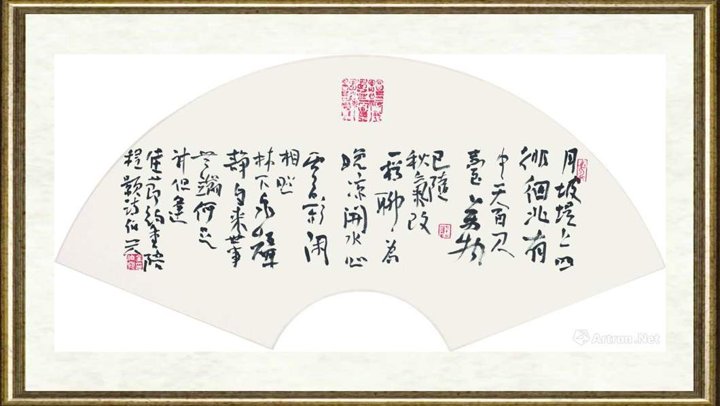 月坡堤上四
徘徊北有
中天百尺
臺萬物
已隨
秋氣改
一樽聊為
晚涼開水心
雲影闲
相照
林下泉聲
靜自來世事
無端何足
計但逢
佳節約重陪
程顥詩
Artron.Net